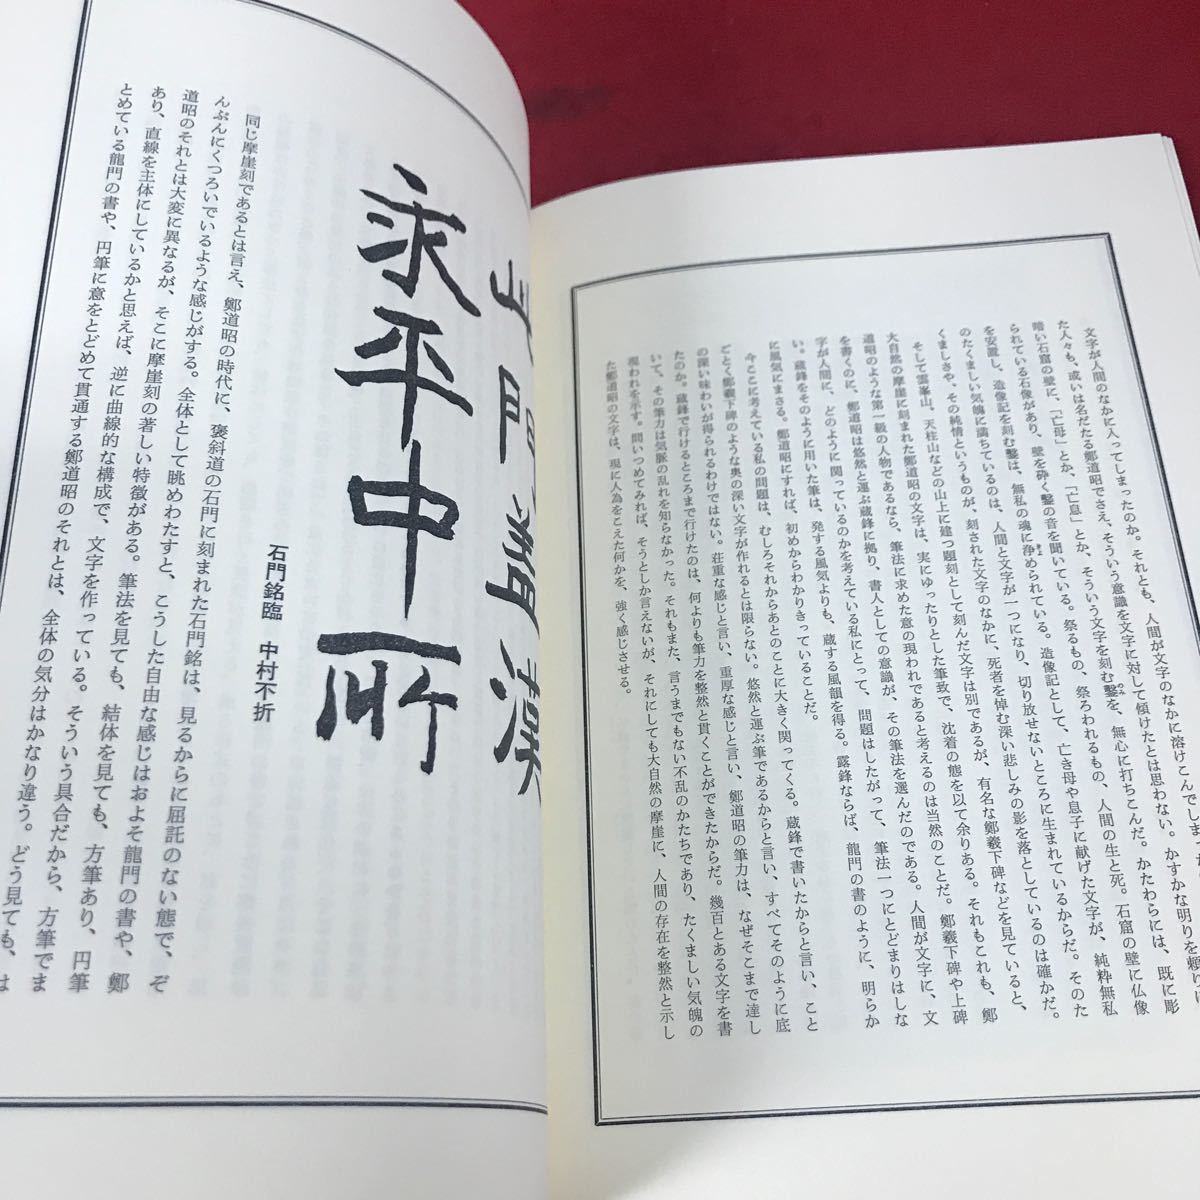 文字が人間のなかに入ってしまったのか。それとも、人間が文字のなかに溶けこんでしまったの
た人々も、或いは名だたる鄭道昭でさえ、そういう意識を文字に対して傾けたとは思わない。かすかな明りを頼りに
暗い石窟の壁に、「亡母」とか、「亡息」とか、そういう文字を刻む鑿を、無心に打ちこんだ。かたわらには、既に彫
られている石像があり、壁を砕く鑿の音を聞いている。祭るもの、祭ろわれるもの、人間の生と死。石窟の壁に仏像
を安置し、造像記を刻む鑿は、無私の魂に浄められている。造像記として、亡き母や息子に献げた文字が、純粋無私
のたくましい気魄に満ちているのは、人間と文字が一つになり、切り放せないところに生まれているからだ。そのた
くましさや、その純情というものが、刻された文字のなかに、死者を悼む深い悲しみの影を落としているのは確かだ。
そして雲峯山、天柱山などの山上に建つ題刻として刻んだ文字は別であるが、有名な鄭羲下碑などを見ていると、
大自然の摩崖に刻まれた鄭道昭の文字は、実にゆったりとした筆致で、沈着の態を以て余りある。それもこれも、鄭
道昭のような第一級の人物であるなら、筆法に求めた意の現われであると考えるのは当然のことだ。鄭羲下碑や上碑
を書くのに、鄭道昭は悠然と運ぶ蔵鋒に拠り、書人としての意識が、その筆法を選んだのである。人間が文字に、文
字が人間に、どのように関っているのかを考えている私にとって、問題はしたがって、筆法一つにとどまりはしな
い。蔵鋒をそのように用いた筆は、発する風気よりも、蔵する風韻を得る。露鋒ならば、龍門の書のように、明らか
に風気にまさる。鄭道昭にすれば、初めからわかりきっていることだ。
今ここに考えている私の問題は、むしろそれからあとのことに大きく関ってくる。蔵鋒で書いたからと言い、こと
ごとく鄭羲下碑のような奥の深い文字が作れるとは限らない。悠然と運ぶ筆であるからと言い、すべてそのように底
の深い味わいが得られるわけではない。荘重な感じと言い、重厚な感じと言い、鄭道昭の筆力は、なぜそこまで達し
たのか。蔵鋒で行けるところまで行けたのは、何よりも筆力を整然と貫くことができたからだ。幾百とある文字を書
いて、その筆力は気脈の乱れを知らなかった。それもまた、言うまでもない不乱のかたちであり、たくましい気魄の
現われを示す。問いつめてみれば、そうとしか言えないが、それにしても大自然の摩崖に、人間の存在を整然と示し
た鄭道昭の文字は、現に人為をこえた何かを、強く感じさせる。
此門蓋漢
永平中所
石門銘臨 中村不折
同じ摩崖刻であるとは言え、鄭道昭の時代に、褒斜道の石門に刻まれた石門銘は、見るからに屈託のない態で、ぞ
んぶんにくつろいでいるような感じがする。全体として眺めわたすと、こうした自由な感じはおよそ龍門の書や、鄭
道昭のそれとは大変に異なるが、そこに摩崖刻の著しい特徴がある。筆法を見ても、結体を見ても、方筆あり、円筆
あり、直線を主体にしているかと思えば、逆に曲線的な構成で、文字を作っている。そういう具合だから、方筆でま
とめている龍門の書や、円筆に意をとどめて貫通する鄭道昭のそれとは、全体の気分はかなり違う。どう見ても、は